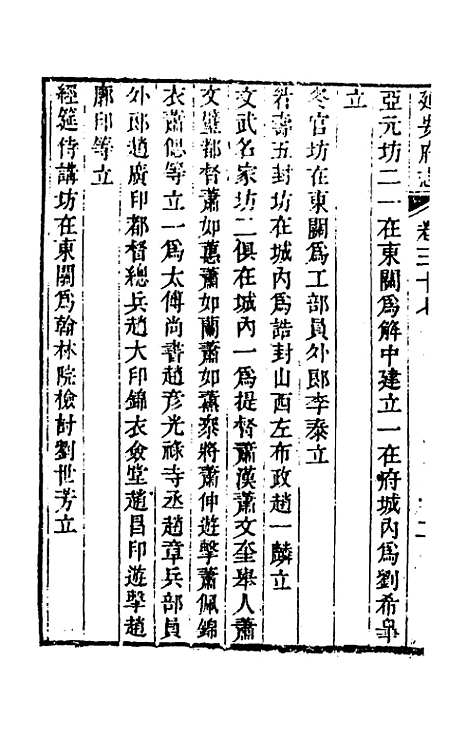 延安府志 卷三十七
亞元坊二一在東關爲解中建立一在府城內爲劉希皐
立
冬官坊在東關爲工部員外郎李泰立
若壽五封坊在城內爲誥封山西左布政趙一麟立
文武名家坊二俱在城內一爲提督蕭漢蕭文奎舉人蕭
文璧都督蕭如蕙蕭如蘭蕭如薰叅將蕭伸遊擊蕭佩錦
衣蕭偲等立一爲太傅尚書趙彥光祿寺丞趙章兵部員
外郎趙廣印都督總兵趙大印錦衣僉堂趙昌印遊擊趙
廓印等立
經筵侍講坊在東關爲翰林院檢討劉世芳立